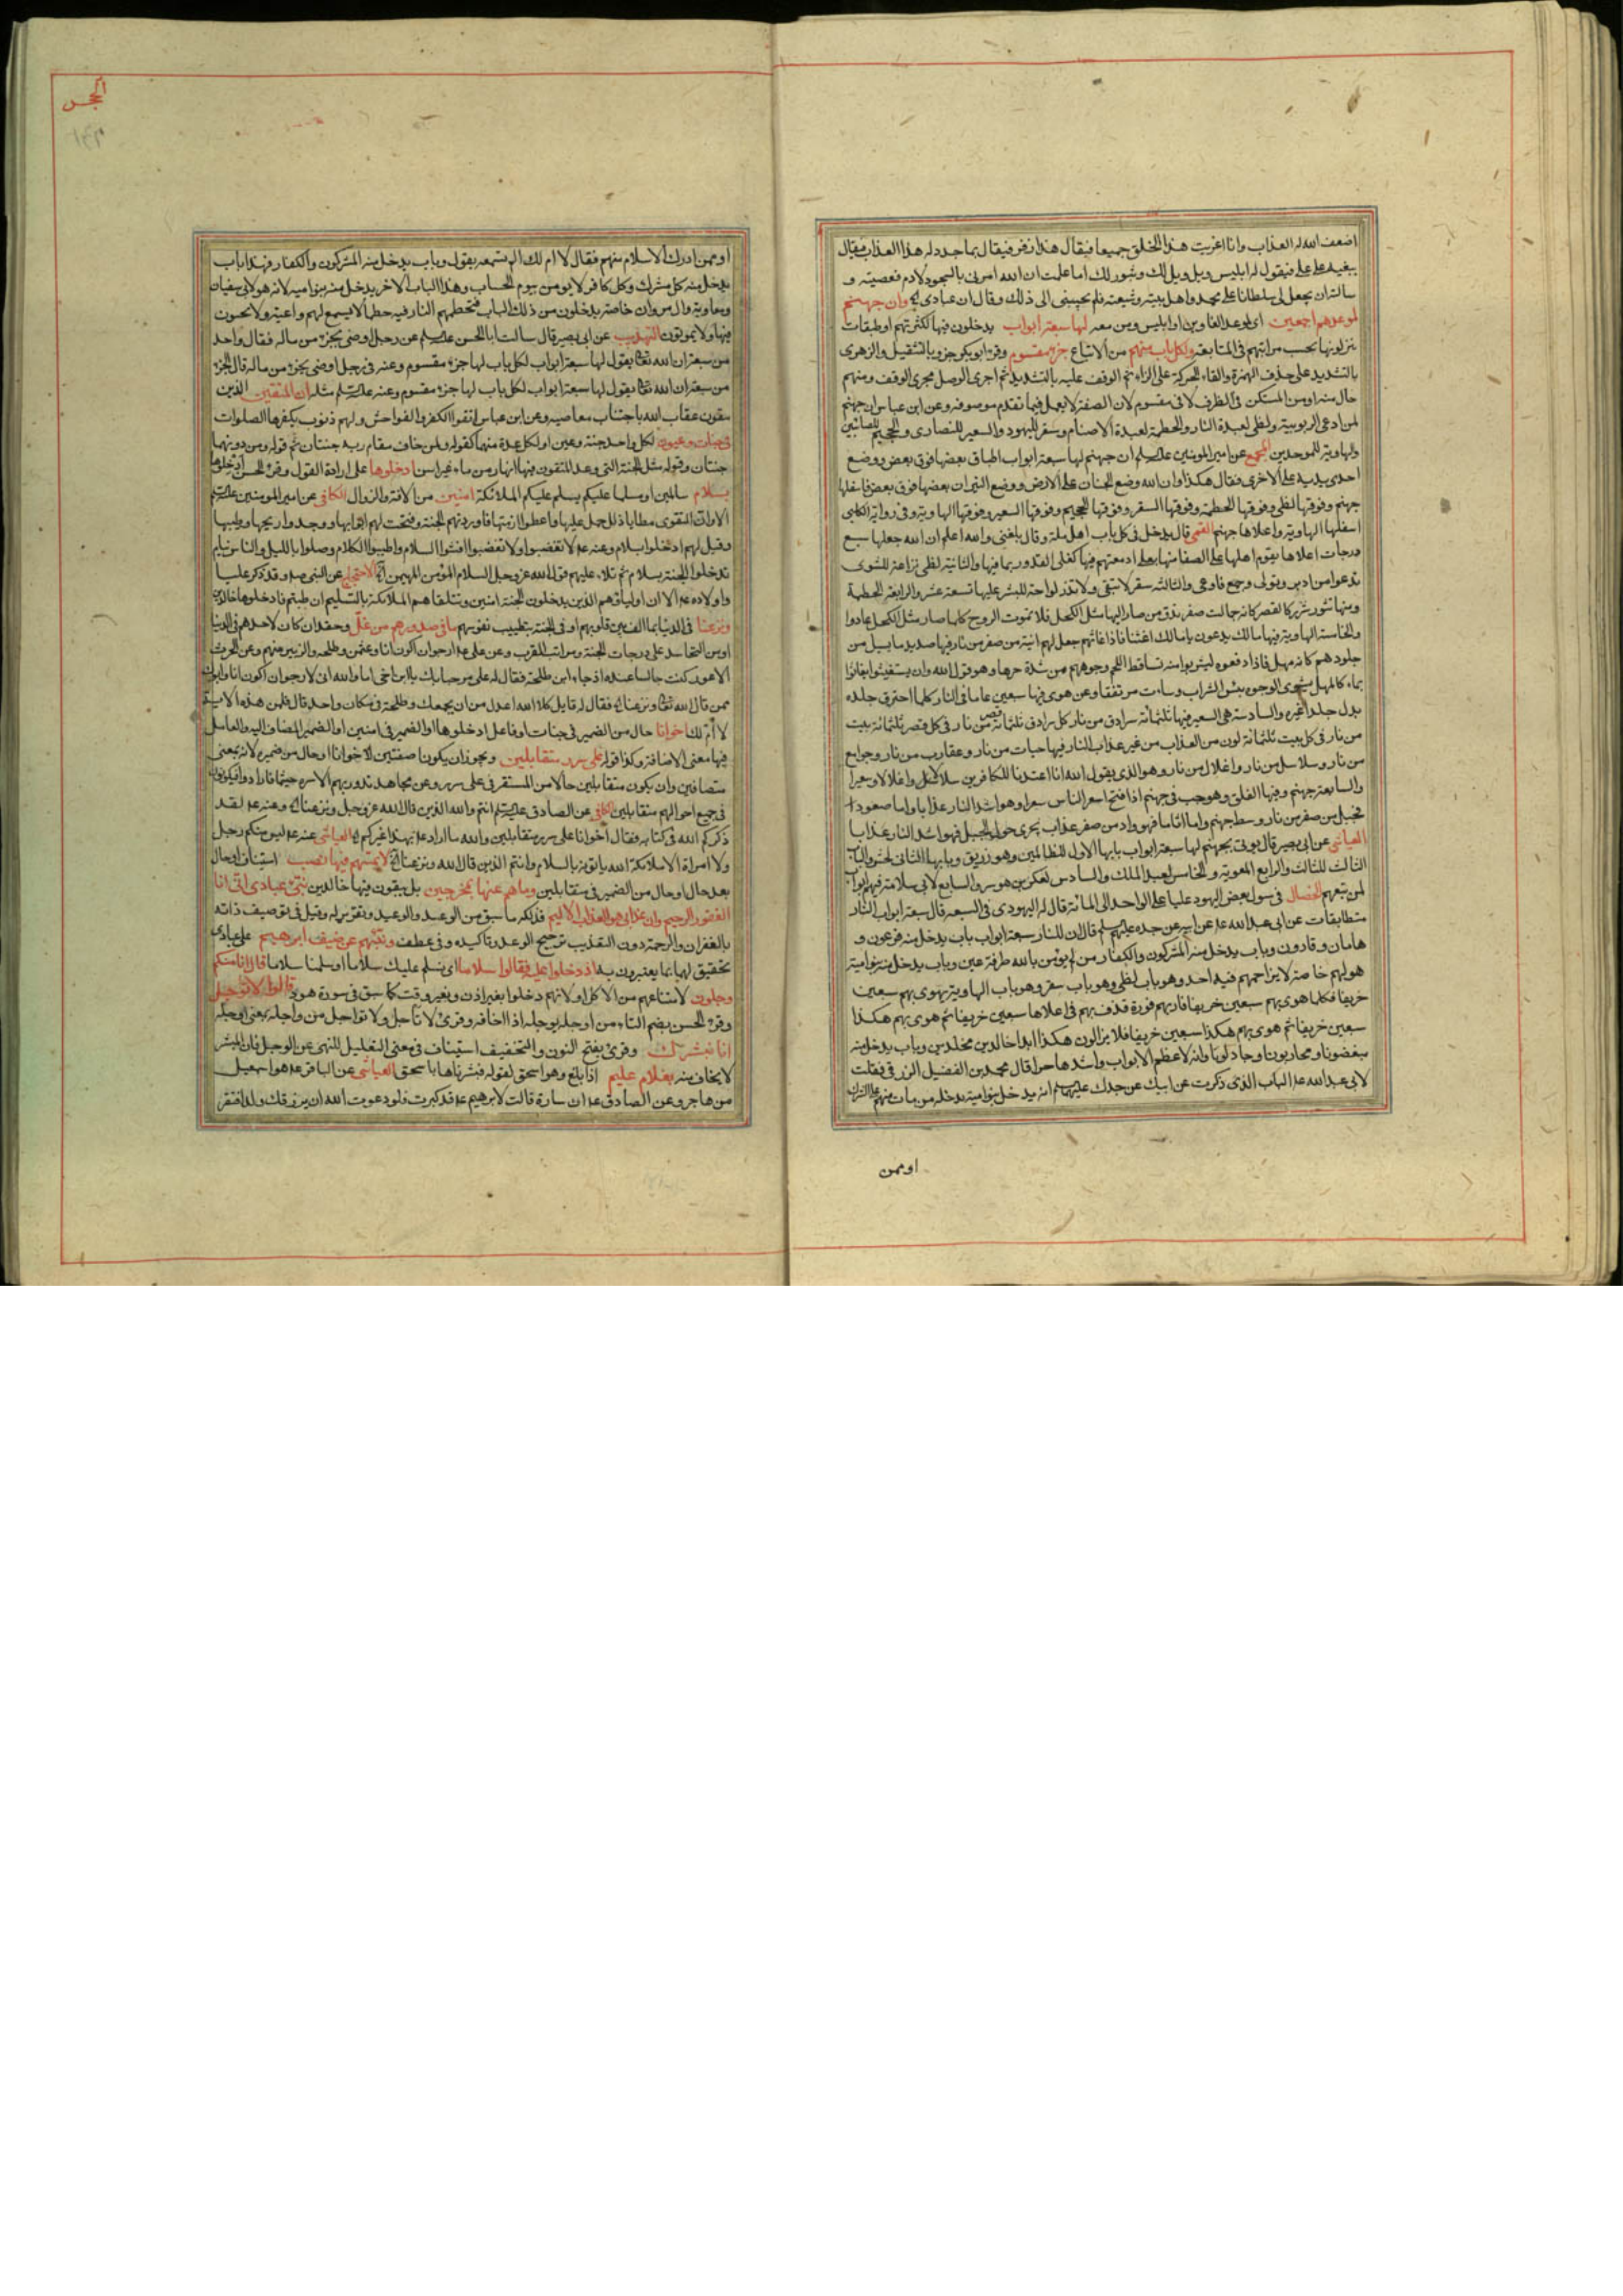 اضعف الله له العذاب وانا اغويت هذا الخلق جميعا فيقال هذا زفر فيقال بما جدد له هذا العذاب فيقال
ببغيه على علي فيقول له ابليس ويل ويل لك وثبور لك اما علمت ان الله امرني بالسجود لادم فعصيته و
سالته ان يجعل لي سلطانا على محمد واهل بيته وشيعته فلم يجبني الى ذلك وقال ان عبادي وان جهنم
لموعدهم اجمعين اي لموعد الغاوين او ابليس ومن معه لها سبعة ابواب يدخلون فيها لكثرتهم او طبقات
ينزلونها بحسب مراتبهم في المتابعة ولكل باب منهم من الاتباع جزء مقسوم وقرء ابو بكر جزو بالتثقيل والزهري
بالتشديد على حذف الهمزة والقاء الحركة على الزاء ثم الوقف عليه بالتشديد ثم اجرى الوصل مجرى الوقف ومنهم
حال منه او من المستكن في الظرف لا في مقسوم لان الصفة لا يعمل فيما تقدم موصوفه وعن ابن عباس ان جهنم
لمن ادعى الربوبية ولظى لعبدة النار والحطمة لعبدة الاصنام وسقر لليهود والسعير للنصارى والجحيم للصابئين
والهاوية للموحدين المجمع عن امير المومنين عليه السلم ان جهنم لها سبعة ابواب اطباق بعضها فوق بعض ووضع
احدى يديه على الاخرى فقال هكذا وان الله وضع الجنان على الارض ووضع النيران بعضها فوق بعض فاسفلها
جهنم وفوقها لظى وفوقها الحطمة وفوقها السقر وفوقها الجحيم وفوقها السعير وفوقها الهاوية وفي رواية الكلبي
اسفلها الهاوية واعلاها جهنم القمي قال يدخل في كل باب اهل ملة وقال بلغني والله اعلم ان الله جعلها سبع
درجات اعلاها يقوم اهلها على الصفا منها يغلى ادمغتهم فيها كغلى القدور بما فيها والثانية لظى نزاعة للشوى
تدعوا من ادبر وتولى وجمع فاوعى والثالثة سقر لا تبقى ولا تذر لواحة للبشر عليها تسعة عشر والرابعة الحطمة
ومنها تثور شرر كالقصر كانه جمالت صفر تدق من صار اليها مثل الكحل فلا تموت الروح كلما صار مثل الكحل عادوا
والخامسة الهاوية فيها مالك يدعون يا مالك اغثنا فاذا غاثهم جعل لهم انية من صفر من نار فيها صديد ما يسيل من
جلودهم كانه مهل فاذا رفعوه ليشربوا منه تساقط اللحم وجوههم من شدة حرها وهو قول الله وان يستغيثوا يغاثوا
بماء كالمهل يشوى الوجوه بئس الشراب وساءت مرتفقا ومن هوى فيها سبعين عاما في النار كلما احترق جلده
بدل جلدا غيره والسادسة هي السعير فيها ثلثمائة سرادق من نار كل سرادق ثلثمائة قصر من نار في كل قصر ثلثمائة بيت
من نار في كل بيت ثلثمائة لون من العذاب من غير عذاب النار فيها حيات من نار وعقارب من نار وجوامع
من نار وسلاسل من نار واغلال من نار وهو الذي يقول الله انا اعتدنا للكافرين سلاسل واغلالا وسعيرا
والسابعة جهنم وفيها الفلق وهو جب في جهنم اذا فتح اسعر الناس سعرا وهو اشد النار عذابا واما صعودا
فجبل من صفر من نار وسط جهنم واما اثاما فهو واد من صفر عذاب يجري حول الجبل فهو اشد النار عذابا
العياشي عن ابي بصير قال يوتى بجهنم لها سبعة ابواب بابها الاول للظالمين وهو زريق وبابها الثاني لحبتر والباب
الثالث للثالث والرابع لمعوية والخامس لعبد الملك والسادس لعكر بن هوسر والسابع لابي سلامة فهم ابواب
لمن تبعهم الخصال في سول بعض اليهود عليا عن الواحد الى المائة قال له اليهودي في السبعة قال سبعة ابواب النار
متطابقات عن ابي عبد الله ع عن ابيه عن جده عليهم السلم قال ان للنار سبعة ابواب باب يدخل منه فرعون و
هامان وقارون وباب يدخل منه المشركون والكفار من لم يؤمن بالله طرفة عين وباب يدخل منه بنوامية
هو لهم خاصة لا يزاحمهم فيه احد وهو باب لظى وهو باب سقر وهو باب الهاوية تهوى بهم سبعين
خريفا فكلما هوى بهم سبعين خريفا فار بهم فورة قذف بهم في اعلاها سبعين خريفا ثم هوى بهم هكذا
سبعين خريفا ثم هوى بهم هكذا سبعين خريفا فلا يزالون هكذا ابدا خالدين مخلدين وباب يدخل منه
مبغضونا ومحاربونا وخاذلونا وانه لاعظم الابواب واشدها حرا قال محمد بن الفضيل الزرقي فقلت
لابي عبد الله ع الباب الذي ذكرت عن ابيك عن جدك عليهما السلم انه يدخل بنوامية يدخله من مات منهم على الشرك
او ممن
الحجر
او ممن ادرك الاسلام منهم فقال لا ام لك الم تسمعه يقول وباب يدخل منه المشركون والكفار فهذا باب
يدخل منه كل مشرك وكل كافر لا يومن بيوم الحساب وهذا الباب الاخر يدخل منه بنوامية لانه هو لابي سفيان
ومعاوية وال مروان خاصة يدخلون من ذلك الباب فتحطمهم النار فيه حطما لا يسمع لهم واعية ولا يحيون
فيها ولا يموتون التهذيب عن ابي بصير قال سالت ابا الحسن عليه السلم عن رجل اوصى بجزء من ماله فقال واحد
من سبعة ان الله تعالى يقول لها سبعة ابواب لكل باب لها جزء مقسوم وعنه في رجل اوصى بجزء من ماله قال الجزء
من سبعة ان الله تعالى يقول لها سبعة ابواب لكل باب لها جزء مقسوم وعنه عليه السلم مثله ان المتقين الذين
يتقون عقاب الله باجتناب معاصيه وعن ابن عباس اتقوا الكفر والفواحش ولهم ذنوب يكفرها الصلوات
في جنات وعيون لكل واحد جنة وعين او لكل عدة منهما كقوله ولمن خاف مقام ربه جنتان ثم قوله ومن دونهما
جنتان وقوله مثل الجنة التي وعد المتقون فيها انهار من ماء غير اسن ادخلوها على ارادة القول وقرء الحسن ادخلوها
بسلام سالمين او مسلما عليكم يسلم عليكم الملائكة امنين من الافة والزوال الكافي عن امير المومنين عليه السلم
الا وان التقوى مطايا ذلل حمل عليها واعطوا ازمتها فاوردتهم الجنة وفتحت لهم ابوابها ووجدوا ريحها وطيبها
وقيل لهم ادخلوا بسلام وعنه ع لا تغضبوا ولا تغضبوا افشوا السلام واطيبوا الكلام وصلوا بالليل والناس نيام
تدخلوا الجنة بسلام ثم تلاء عليهم قول الله عز وجل السلام المؤمن المهيمن الاحتجاج عن النبي ص وقد ذكر عليا
واولاده ع الا ان اولياءهم الذين يدخلون الجنة امنين وتتلقاهم الملائكة بالتسليم ان طبتم فادخلوها خالدين
ونزعنا في الدنيا بما الف بين قلوبهم او في الجنة بتطييب نفوسهم ما في صدورهم من غل وحقد ان كان لاحدهم في الدنيا
او من التحاسد على درجات الجنة ومراتب القرب وعن علي ع ارجو ان اكون انا وعثمن وطلحة والزبير منهم وعن الحرث
الاعور كنت جالسا عنده اذ جاء ابن طلحة فقال له علي مرحبا بك يا ابن اخي اما والله اني لارجو ان اكون انا وابوك
ممن قال الله تعالى ونزعنا فقال له قايل كلا الله اعدل من ان يجمعك وطلحة في مكان واحد قال فلمن هذه الاية
لا ام لك اخوانا حال من الضمير في جنات او فاعل ادخلوها او الضمير في امنين او الضمير المضاف اليه والعامل
فيها معنى الاضافة وكذا قوله على سرر متقابلين ويجوز ان يكونا صفتين لاخوانا او حال من ضميره لانه بمعنى
متصافين وان يكون متقابلين حالا من المستقر في على سرر وعن مجاهد تدور بهم الاسرة حيثما داروا فيكونون
في جميع احوالهم متقابلين الكافي عن الصادق عليه السلم انتم والله الذين قال الله عز وجل ونزعنا وعنه ع لقد
ذكركم الله في كتابه فقال اخوانا على سرر متقابلين والله ما اراد بهذا غيركم العياشي عنه ع ليس منكم رجل
ولا امراة الا وملائكة الله ياتونه بالسلام وانتم الذين قال الله ونزعنا لا يمسهم فيها نصب استيناف او حال
بعد حال او حال من الضمير في متقابلين وما هم عنها بمخرجين بل يبقون فيها خالدين نبئ عبادي اني انا
الغفور الرحيم وان عذابي هو العذاب الاليم فذلكة ما سبق من الوعد والوعيد وتقرير له وقيل في توصيف ذاته
بالغفران والرحمة دون التعذيب ترجيح الوعد وتاكيده وفي عطف ونبئهم عن ضيف ابرهيم على عبادي
تحقيق لهما بما يعتبرون به اذ دخلوا عليه فقالوا سلاما اي نسلم عليك سلاما او سلمنا سلاما قال انا منكم
وجلون لامتناعهم من الاكل او لانهم دخلوا بغير اذن وبغير وقت كما سبق في سورة هود قالوا لا توجل
وقرء الحسن بضم التاء من اوجله يوجله اذا اخافه وقرئ لا تاجل ولا تواجل من واجله بمعنى اوجله
انا نبشرك وقرئ بفتح النون والتخفيف استيناف في معنى التعليل للنهي عن الوجل فان المبشر
لا يخاف منه بغلام عليم اذا بلغ وهو اسحق لقوله فبشرناها باسحق العياشي عن الباقر ع هو اسمعيل
من هاجر وعن الصادق ع ان سارة قالت لابرهيم ع قد كبرت فلو دعوت الله ان يرزقك ولدا فتقر